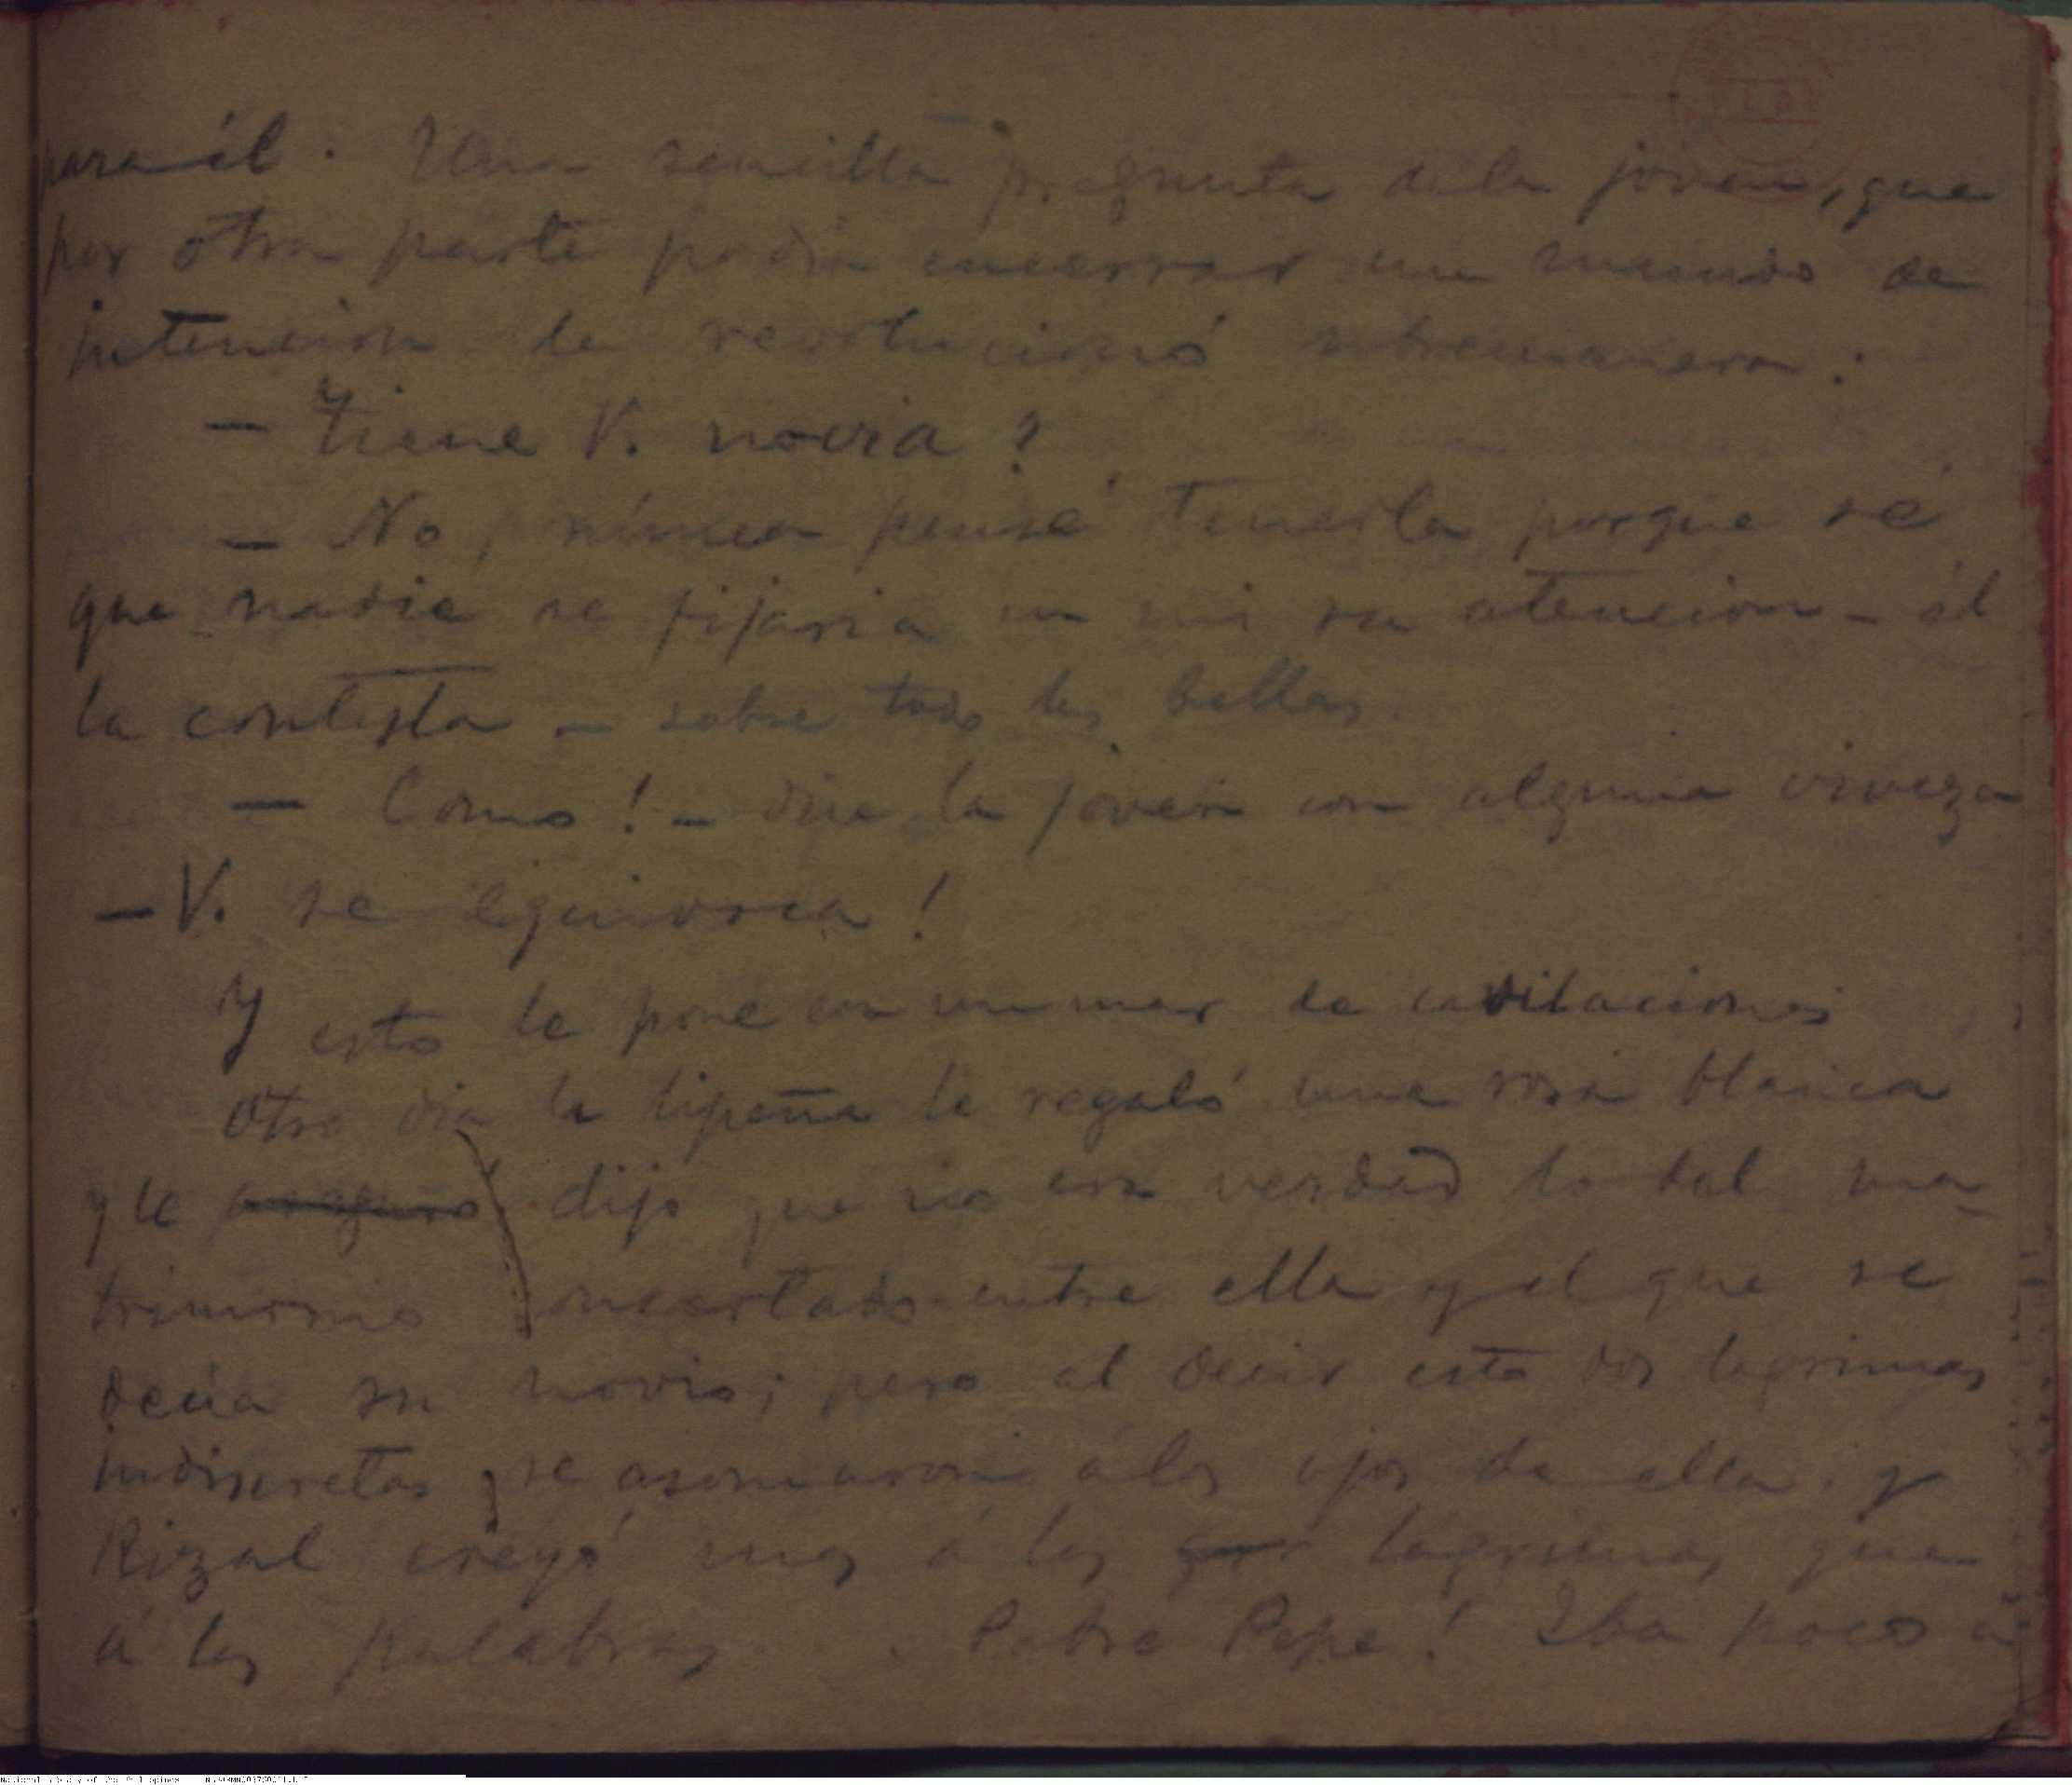 para él. Una sencilla pregunta de la joven, que
por otra parte podia encerrar un mundo de
intencion le revolucionó sobremanera:
— Tiene V. novia?
— No, núnca pensé tenerla porque sé
que nadie se fijaria en mi su atencion — él
la contesta — sobre todo las bellas.
— Como! — dice la joven con alguna viveza
— V. se equivoca!
Y esto le pone en un mar de cavilaciones
Otro dia la lipeña le regaló una rosa blanca
y le dijo que no era verdad lo del ma-
trimonio concertado entre ella y el que se
decia su novio; pero al decir esto dos lagrimas
indiscretas se asomaron á los ojos de ella, y
Rizal creyó mas á las lagrimas que
á las palabras... Pobre Pepe! Iba poco á